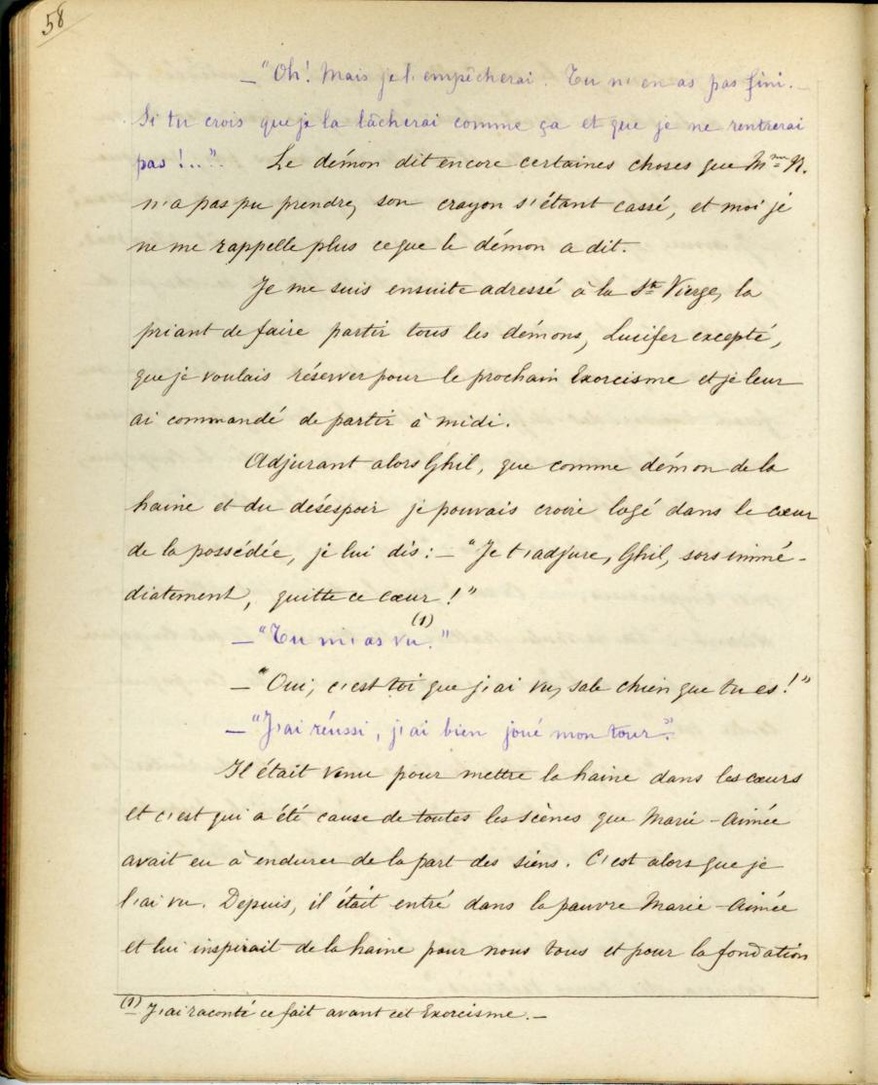 58
— "Oh! Mais je l'empêcherai. Tu n'en as pas fini. —
Si tu crois que je la lâcherai comme ça et que je ne rentrerai
pas!..". Le démon dit encore certaines choses que Mme N.
n'a pas pu prendre, son crayon s'étant cassé, et moi je
ne me rappelle plus ce que le démon a dit.
Je me suis ensuite adressé à la Ste Vierge, la
priant de faire partir tous les démons, Lucifer excepté,
que je voulais réserver pour le prochain Exorcisme et je leur
ai commandé de partir à midi.
Adjurant alors Ghil, que comme démon de la
haine et du désespoir je pouvais croire logé dans le cœur
de la possédée, je lui dis: — "Je t'adjure, Ghil, sors immé-
diatement, quitte ce cœur!"
— "Tu m'as vu (1)."
— "Oui, c'est toi que j'ai vu, sale chien que tu es!"
— "J'ai réussi, j'ai bien joué mon tour."
Il était venu pour mettre la haine dans les cœurs
et c'est qui a été cause de toutes les scènes que Marie-Aimée
avait eu à endurer de la part des siens. C'est alors que je
l'ai vu. Depuis, il était entré dans la pauvre Marie-Aimée
et lui inspirait de la haine pour nous tous et pour la fondation
(1) J'ai raconté ce fait avant cet Exorcisme. —